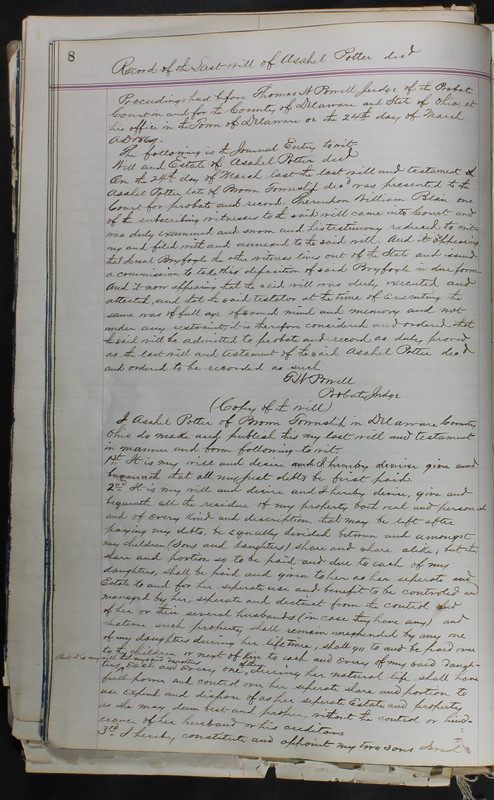 8
Record of the Last will of Asahel Potter decd
Proceedings had before Thomas W Powell Judge of the Probate
Court in and for the County of Delaware and State of Ohio at
his office in the Town of Delaware on the 24th day of March
AD
The following is the Journal Entry to wit
Will and Estate of Asahel Potter decd
On the 24th day of March last the last will and testament of
Asahel Potter late of Brown Township decd was presented to the
Court for probate and record, Thereupon William Blain one
of the subscribing witnesses to the said will came into Court and
was duly examined and sworn and his testimony reduced to writ
ing and filed with and annexed to the said will. And it appearing
that the other witness lives out of the State and issued
a commission to take the deposition of said in due form
And it now appearing that the said will was duly executed and
attested, and that the said testator at the time of executing the
same was of full age of sound mind and memory and not
under any restraint, it is therefore considered and ordered that
the said will be admitted to probate and record as duly proved
as the last will and testament of the said Asahel Potter decd
and ordered to be recorded as such
T W Powell
Probate Judge
(Copy of the will)
I Asahel Potter of Brown Township in Delaware County
Ohio do make and publish this my last will and testament
in manner and form following to wit
1st It is my will and desire and I hereby devise give and
bequeath that all my just debts be first paid.
2nd It is my will and desire and I hereby devise, give and
bequeath all the residue of my property both real and personal
and of every kind and description, that may be left after
paying my debts, be equally divided between and amongst
my children (sons and daughters) share and share alike, but the
share and portion so to be paid and due to each of my
daughters, shall be paid and given to her as her seperate and
Estate to and for her seperate use and benefit to be controled and
managed by her, seperate and distinct from the control and
of her or their several husbands (in case they have any) and
whatever such property shall remain unexpended by any one
of my daughters during her lifetime, shall go to and be paid over
to the children or next of kin to each and every of my said daugh-
ters, each and every one, during her natural life shall have
full power and control over her seperate share and portion to
use expend and dispose of as her seperate Estate and property
as she may deem best and proper, without the control or hind-
erance of her husband or his creditors
3rd I hereby constitute and appoint my two sons